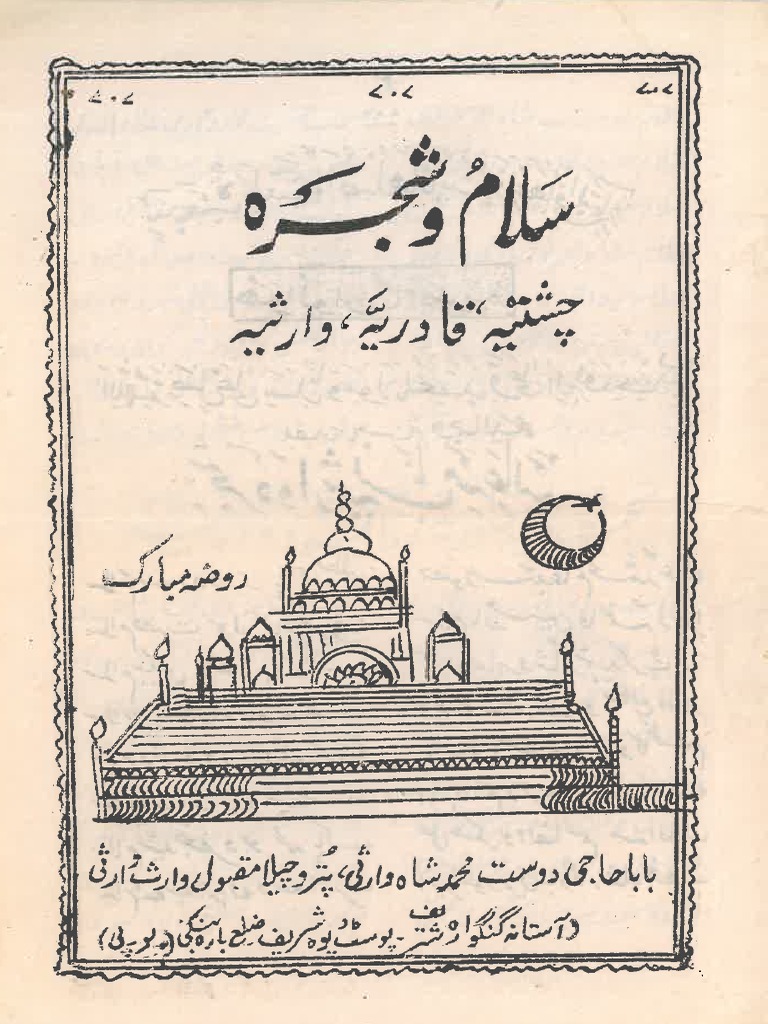 ۷۰۷ ۷۰۷ ۷۸۶
سَلامُ و شجرَہ
چشتیہ، قادریہَّ، وارثیہ
روضہ مبارک
بابا حاجی دوست محمد شاہ وارثی، پُتر و چیلا مقبول وارث وارثی
(آستانہ گنگوارہ شریف۔ پوسٹ دیوہ شریف ضلع بارہ بنکی (یو۔پی)